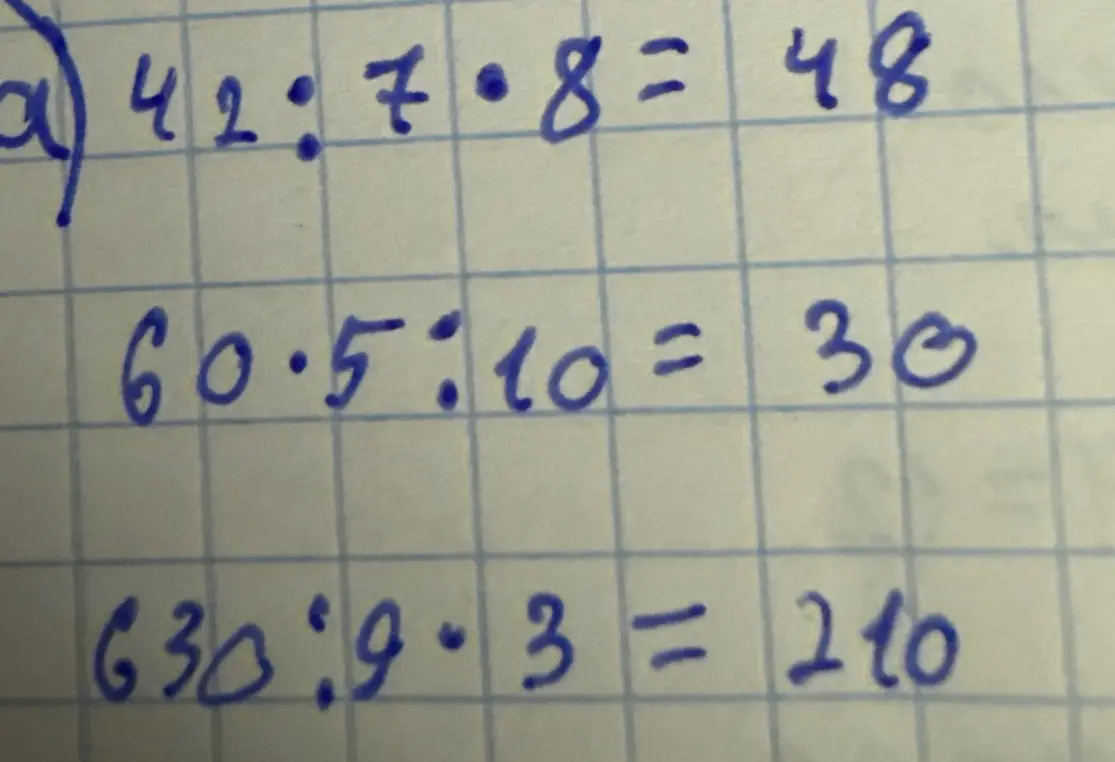 а) 42 : 7 · 8 = 48
60 · 5 : 10 = 30
630 : 9 · 3 = 210